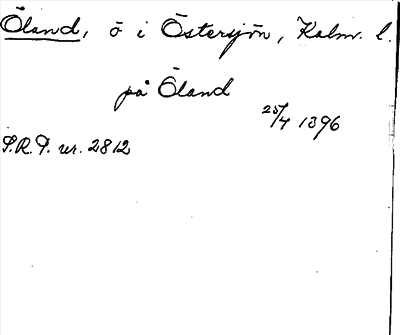 Öland, ö i Östersjön, Kalm. l.
på Öland
25/4 1396
S.R.P. nr. 2812